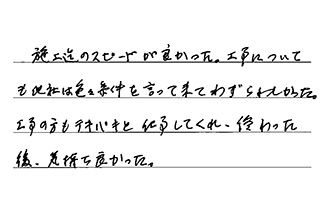 施工迄のスピードが良かった。工事について
も他社は色々条件を言って来てわずらわしかった。
工事の方もテキパキと仕事してくれ、終わった
後、気持ち良かった。